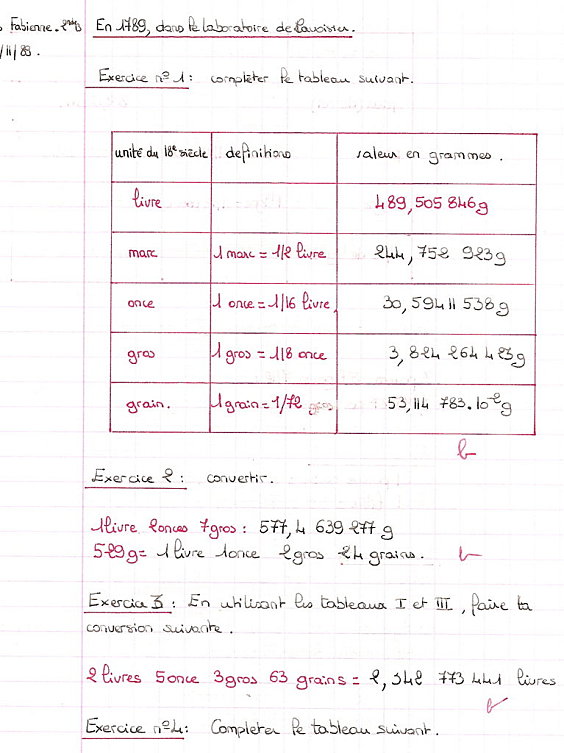 Fabienne. 2nde D
En 1789, dans le laboratoire de Lavoisier.
/11/89.
Exercice n°1: compléter le tableau suivant.
unité du 18e siècle définitions valeur en grammes.
livre 489,505 846g
marc 1 marc = 1/2 livre 244,752 923g
once 1 once = 1/16 livre, 30,59411 538g
gros 1 gros = 1/8 once 3,824 264 423g
grain. 1 grain = 1/72 gros 53,114 783.10-2g
Exercice 2: convertir.
1 livre 2 onces 7 gros: 577,4 639 277 g
529g = 1 livre 1 once 2 gros 24 grains.
Exercice 3: En utilisant les tableaux I et III, faire la
conversion suivante.
2 livres 5 once 3 gros 63 grains = 2,342 773 441 livres
Exercice n°4: Completer le tableau suivant.